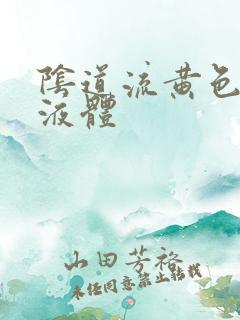 陰道流黃色
液體
山田芳裕
未经同意禁止转载